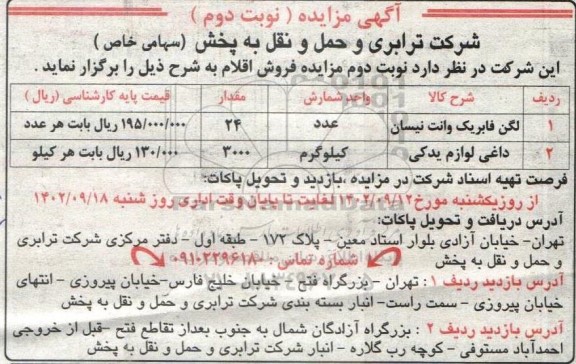 آگهی مزایده ( نوبت دوم )
شرکت ترابری و حمل و نقل به پخش (سهامی خاص )
این شرکت در نظر دارد نوبت دوم مزایده فروش اقلام به شرح ذیل را برگزار نماید .
ردیف شرح کالا واحد شمارش مقدار قیمت پایه کارشناسی (ریال )
۱ لگن فابریک وانت نیسان عدد ۲۴ ۱۹۵/۰۰۰/۰۰۰ ریال بابت هر عدد
۲ داغی لوازم یدکی کیلوگرم ۳۰۰۰ ۱۳۰/۰۰۰ ریال بابت هر کیلو
فرصت تهیه اسناد شرکت در مزایده ،بازدید و تحویل پاکات:
از روزیکشنبه مورخ۱۴۰۲/۰۹/۱۲ لغایت تا پایان وقت اداری روز شنبه ۱۴۰۲/۰۹/۱۸
آدرس دریافت و تحویل پاکات:
تهران- خیابان آزادی بلوار استاد معین - پلاک ۱۷۲ - طبقه اول - دفتر مرکزی شرکت ترابری
و حمل و نقل به پخش شماره تماس : ۰۹۱۰۲۲۹۶۱۸۰
آدرس بازدید ردیف ۱ : تهران - بزرگراه فتح - خیابان خلیج فارس-خیابان پیروزی - انتهای
خیابان پیروزی - سمت راست- انبار بسته بندی شرکت ترابری و حمل و نقل به پخش
آدرس بازدید ردیف ۲ : بزرگراه آزادگان شمال به جنوب بعداز تقاطع فتح -قبل از خروجی
احمدآباد مستوفی - کوچه رب گلاره - انبار شرکت ترابری و حمل و نقل به پخش